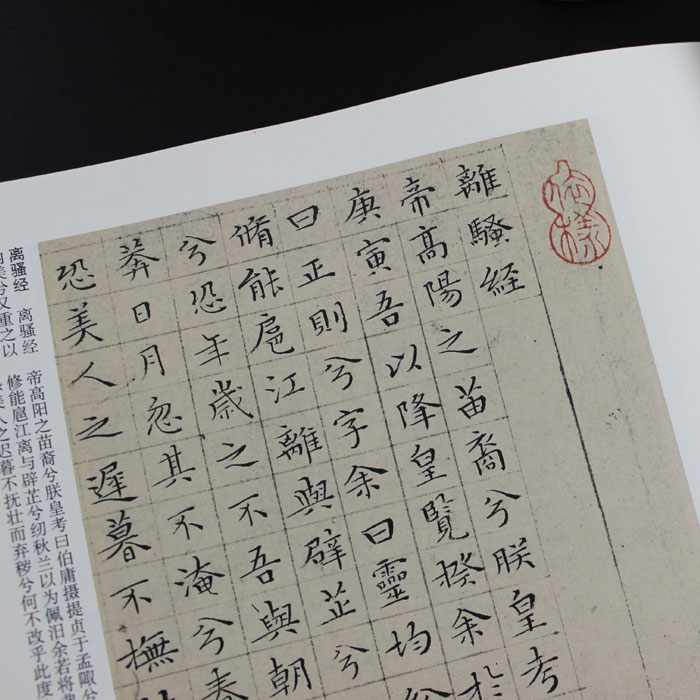 離騷経
帝髙陽之苗裔兮朕皇考
庚寅吾以降皇覽揆余於
曰正則兮字余曰靈均兮
脩能扈江離與辟芷兮
兮恐年歳之不吾與朝
莾日月忽其不淹兮春
恐美人之遲暮不撫
离骚经 离骚经 帝高阳之苗裔兮朕皇考曰伯庸摄提贞于孟陬兮
美兮又重之以修能扈江离与辟芷兮纫秋兰以为佩汨余若将
美人之迟暮不抚壮而弃秽兮何不改乎此度